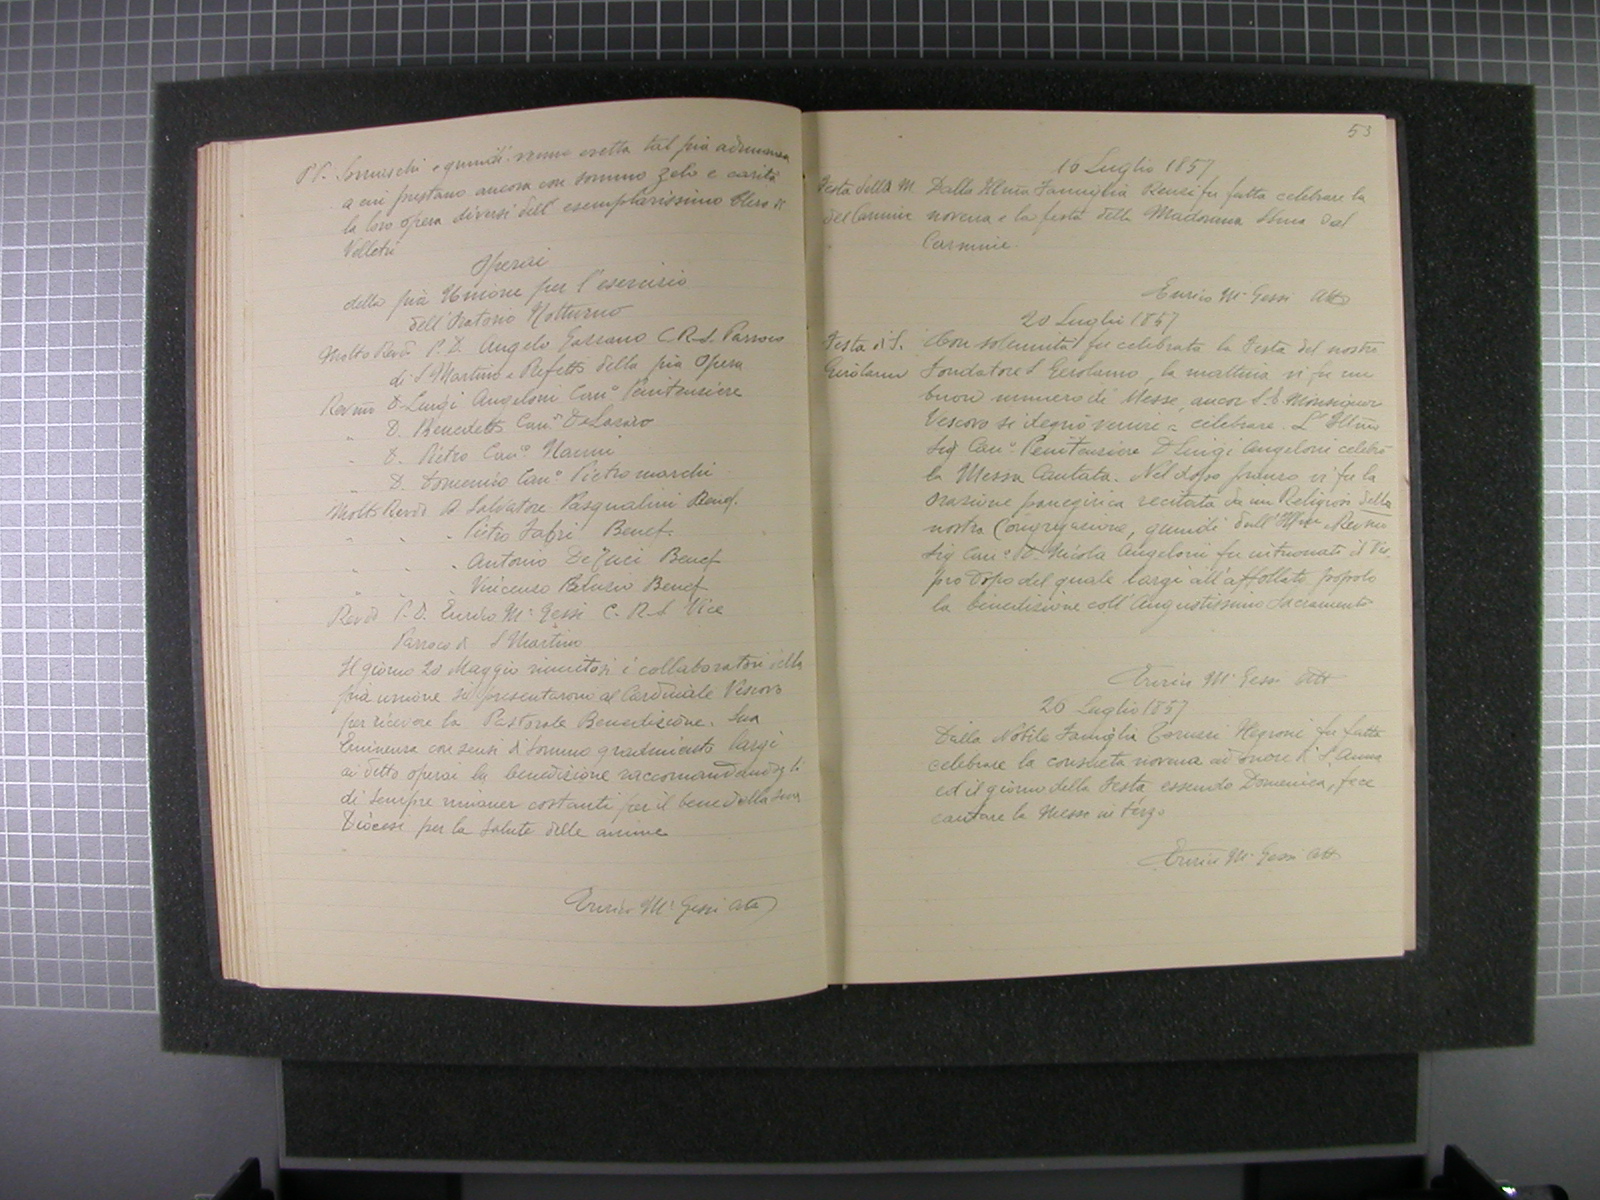 PP. Somaschi e quindi venne eretta tal pia adunanza
a cui prestano ancora con sommo zelo e carità
la loro opera diversi dell' esemplarissimo Clero di
Velletri
Operai
della pia Unione per l'esercizio
dell'Oratorio Notturno
Molto Revdo P. D. Angelo Gassano C.R.S. Parroco
di S Martino e Prefetto della pia Opera
Revmo D. Luigi Angeloni Can° Penitenziere
" D. Benedetto Can° De Lazaro
" D. Pietro Can° Nanni
" D. Domenico Can° Pietromarchi
Molto Revdo D Salvatore Pasqualini Benef.
" " " Pietro Fabri Benef.
" " " Antonio De Luci Benef
" " " Vincenzo Benef
Revdo P. D. Enrico Mª Gessi C. R. S Vice
Parroco di S Martino
Il giorno 20 Maggio riunitosi i collaboratori della
pia unione si presentarono al Cardinale Vescovo
per ricevere la Pastorale Benedizione. Sua
Eminenza con sensi di sommo gradimento largì
ai detti operai la benedizione raccomandandogli
di sempre rimaner costanti per il bene della sua
Diocesi per la salute delle anime
Enrico Mª Gessi Atto
53
16 Luglio 1857
Festa della M. Dalla Illma Famiglia Renzi fu fatta celebrare la
del Carmine novena e la festa della Madonna SSma del
Carmine.
Enrico Mª Gessi Atto
20 Luglio 1857
Festa di S. Con solennità fu celebrata la Festa del nostro
Girolamo Fondatore S Gerolamo, la mattina vi fu un
buon numero di Messe, ancor S. E. Monsignor
Vescovo si degnò venire a celebrare. L'Illmo
Sig Can° Penitenziere D Luigi Angeloni celebrò
la Messa Cantata. Nel dopo pranzo vi fu la
orazione panegirica recitata da un Religioso della
nostra Congregazione, quindi dall'Illmo Revmo
Sig Can° D. Nicola Angeloni fu intuonati il Ves-
pro dopo del quale largì all'affollato popolo
la benedizione coll'Augustissimo Sacramento
Enrico Mª Gessi Atto
26 Luglio 1857
Dalla Nobile Famiglia Negroni fu fatta
celebrare la consueta novena ad onore di S. Anna
ed il giorno della Festa essendo Domenica, fece
cantare la Messa in terzo
Enrico Mª Gessi Atto